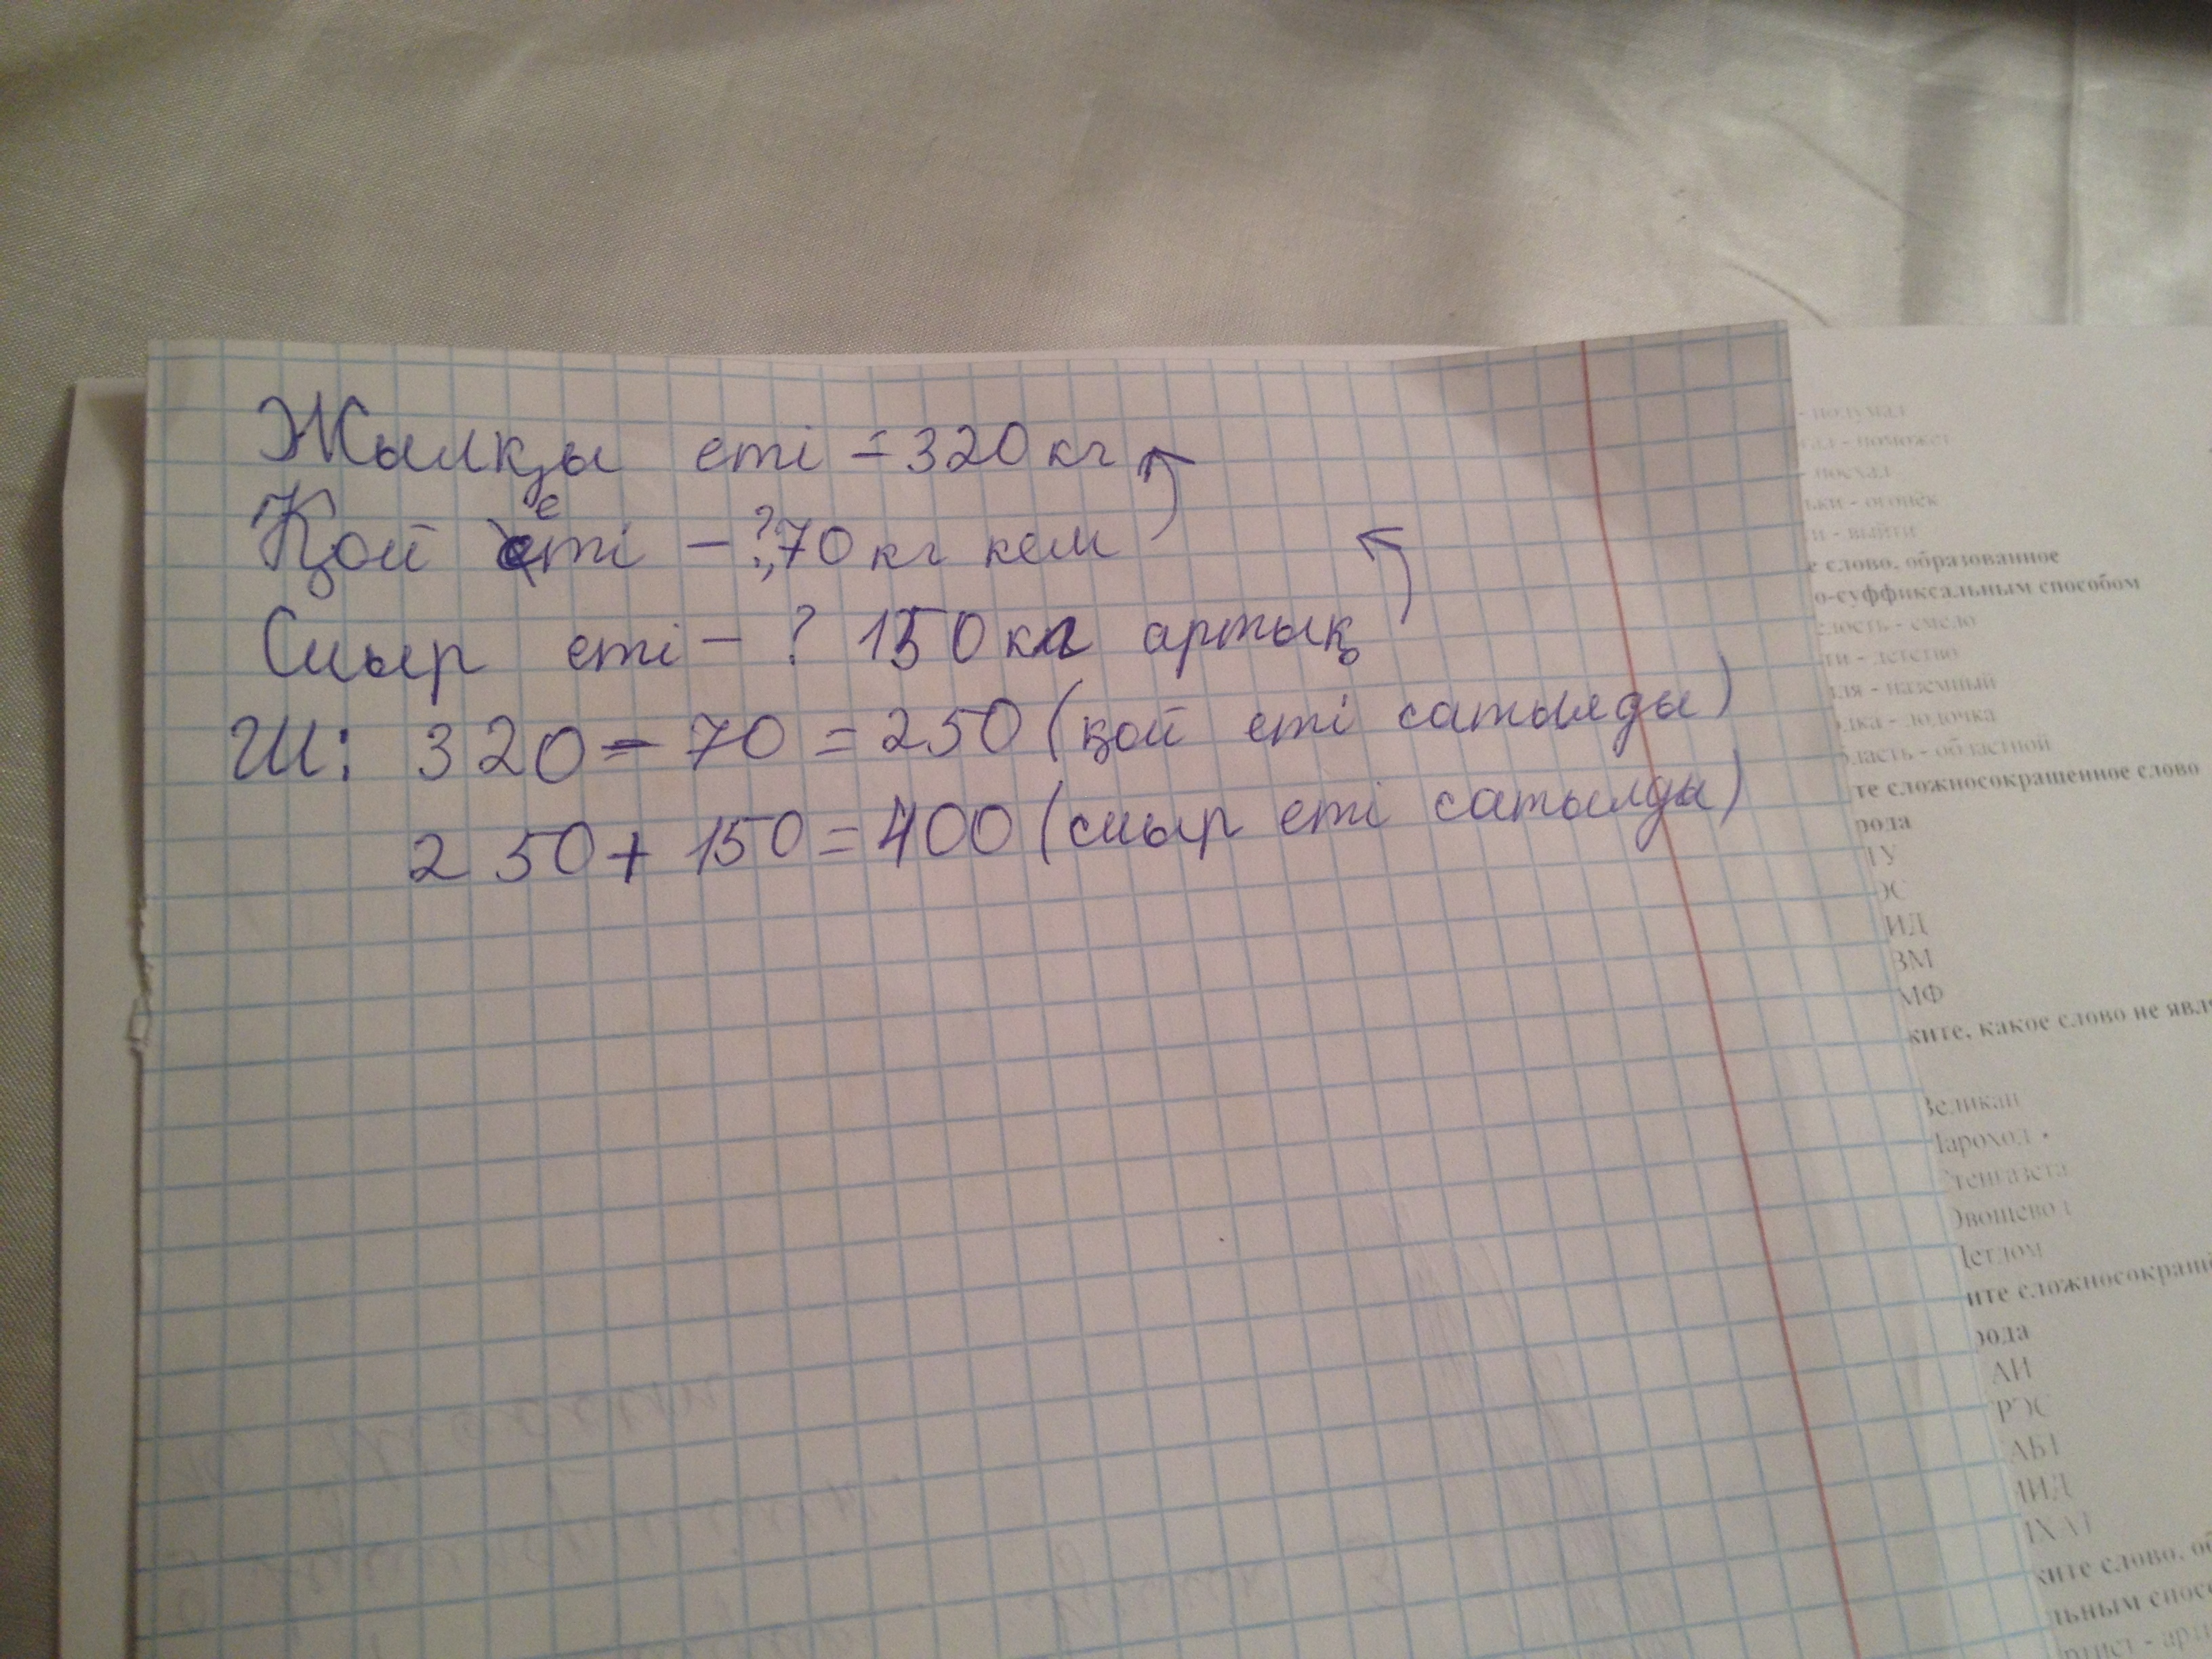 Жылқы еті = 320 кг
Қой еті - ?, 70 кг кем
Сиыр еті - ? 150 кг артық
Ш: 320 - 70 = 250 (қой еті сатылды)
250 + 150 = 400 (сиыр еті сатылды)
- подумал
- поможет
- поехал
- огонёк
- выйти
е слово, образованное
о-суффиксальным способом
- смело
ти - детство
- наземный
- лодочка
бласть - областной
те сложносокращенное слово
рода
ТУ
ЭС
ИД
ВМ
МФ
ките, какое слово не явля
Великан
Пароход
Стенгазета
Овощевод
Детдом
ите сложносокращён
рода
АИ
РЭС
АБТ
МИД
МХАТ
ките слово, об
льным спосо
артист - арти